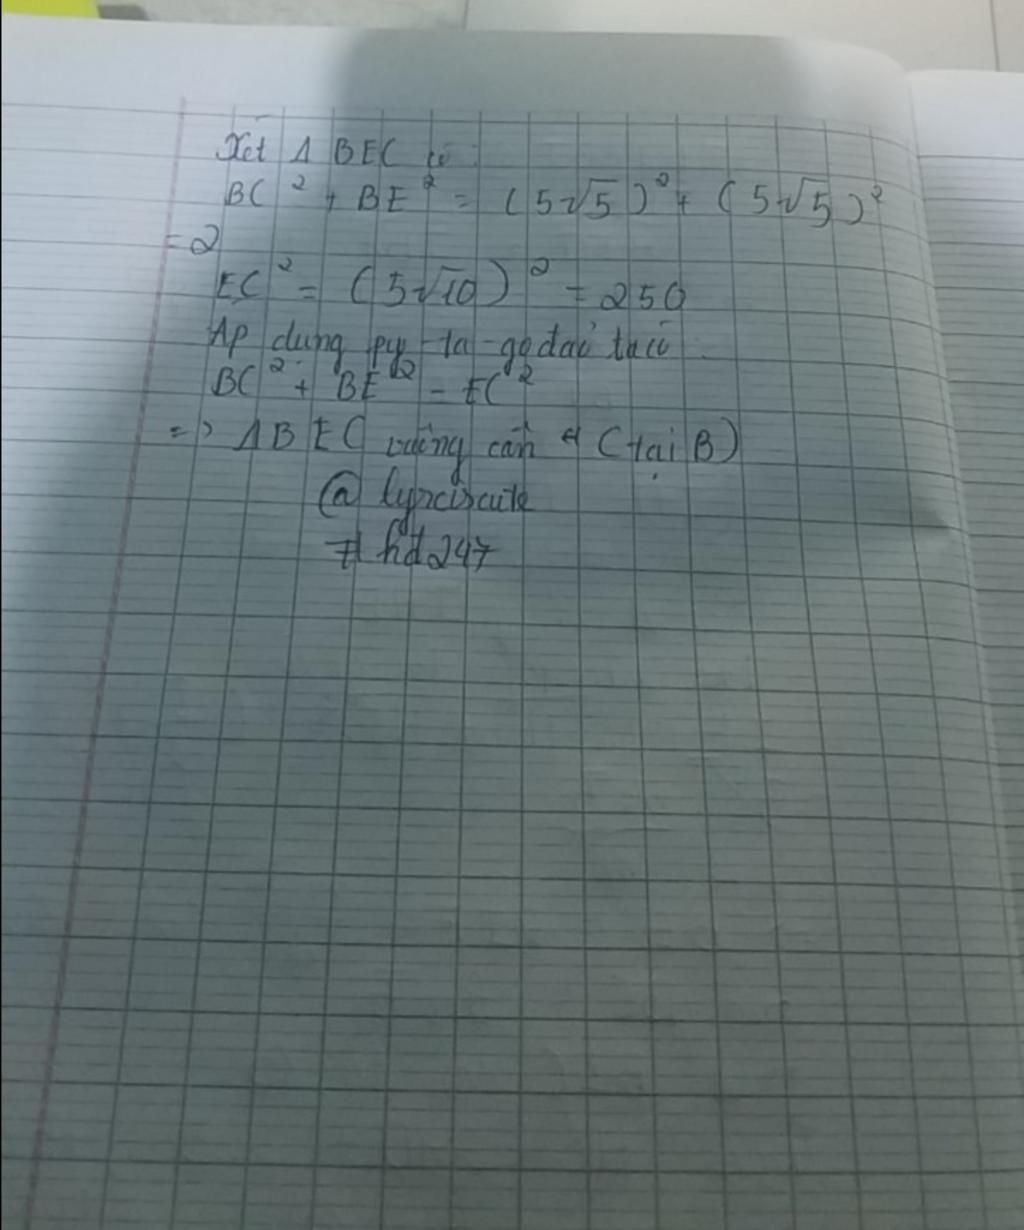 Xét Δ BEC có :
BC² + BE² = (5√5)² + (5√5)²
= 2
EC² = (5√10)² = 250
Ap dụng py-ta-go đảo ta có
BC² + BE² = EC²
=> Δ BEC vuông cân (tại B)
@ lynciscute
# hd247